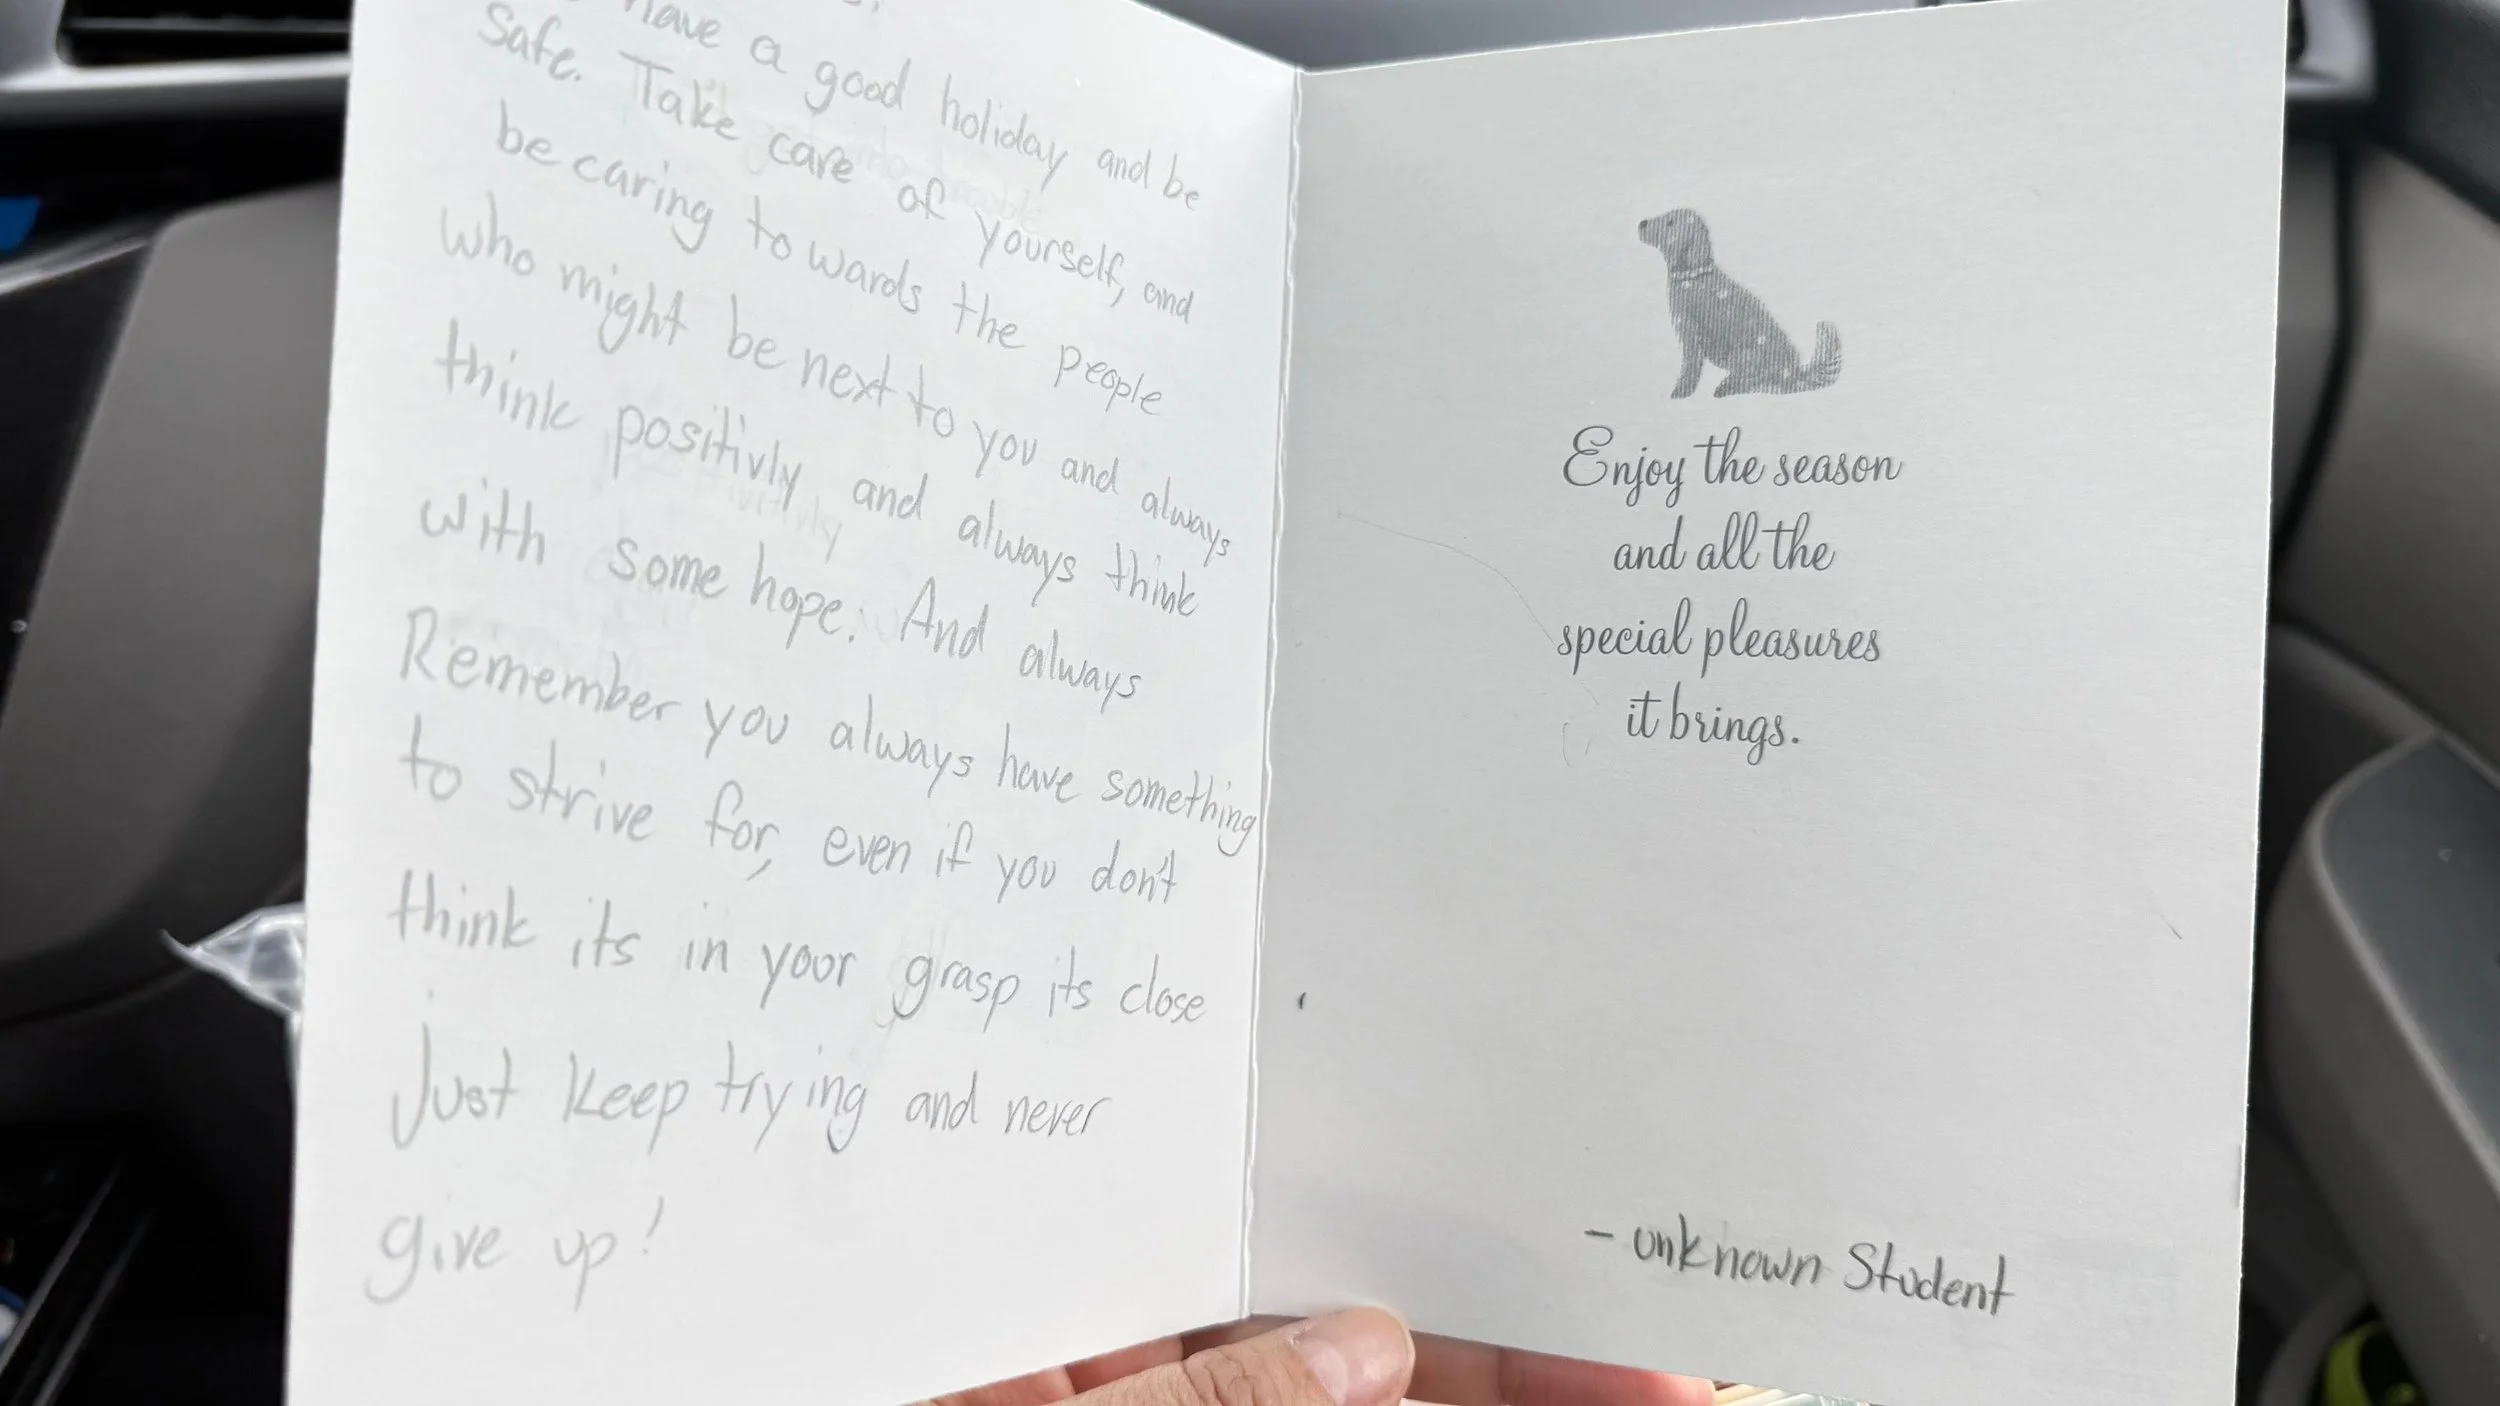 have a good holiday and be
Safe. Take care of yourself, and
be caring towards the people
who might be next to you and always
think positivly and always think
with some hope. And always
Remember you always have something
to strive for, even if you don't
think its in your grasp its close
Just keep trying and never
give up!
Enjoy the season
and all the
special pleasures
it brings.
- unknown Student